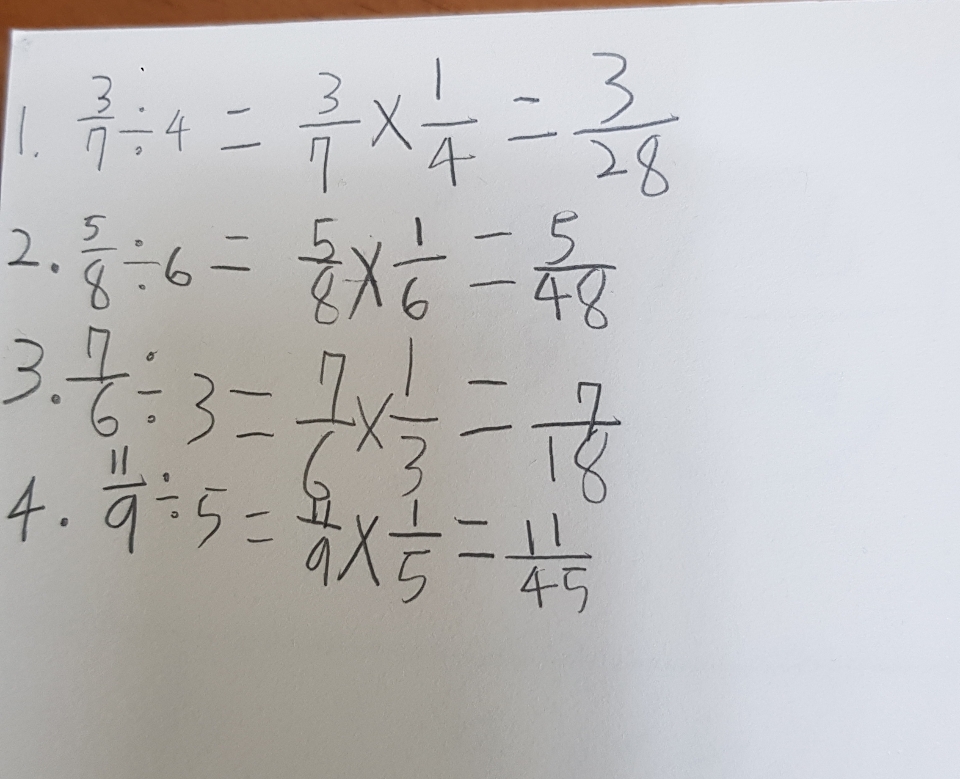 1. 3/7 ÷ 4 = 3/7 × 1/4 = 3/28
2. 5/8 ÷ 6 = 5/8 × 1/6 = 5/48
3. 7/6 ÷ 3 = 7/6 × 1/3 = 7/18
4. 11/9 ÷ 5 = 11/9 × 1/5 = 11/45